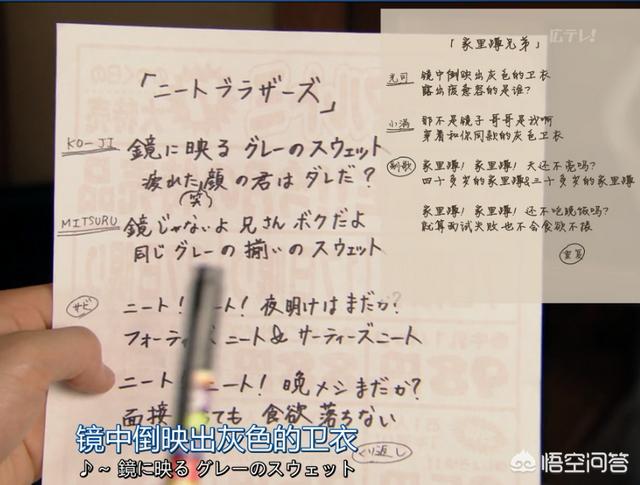 「ニートブラザーズ」
KO-JI
鏡に映る グレーのスウェット
疲れた顔の君はダレだ?
(笑)
MITSURU
鏡じゃないよ 兄さん ボクだよ
同じグレーの 揃いの スウェット
サビ
ニート! ート! 夜明けは まだか?
フォーティ ニート& サーティーズニート
ニート ニート! 晩メシ まだか?
面接 ても 食欲 落ちない
くり返し
「家里蹲兄弟」
広テレ!
光司
镜中倒映出灰色的卫衣
露出疲惫容的是谁?
小满
那不是镜子 哥哥是我啊
穿着和你同款的灰色卫衣
副歌
家里蹲! 家里蹲! 天还不亮吗?
四十多岁的家里蹲&三十多岁的家里蹲
家里蹲! 家里蹲! 还不吃晚饭吗?
就算面试失败 也不会食欲不振
重复
镜中倒映出灰色的卫衣
♪～ 鏡に映る グレーのスウェット
悟空问答